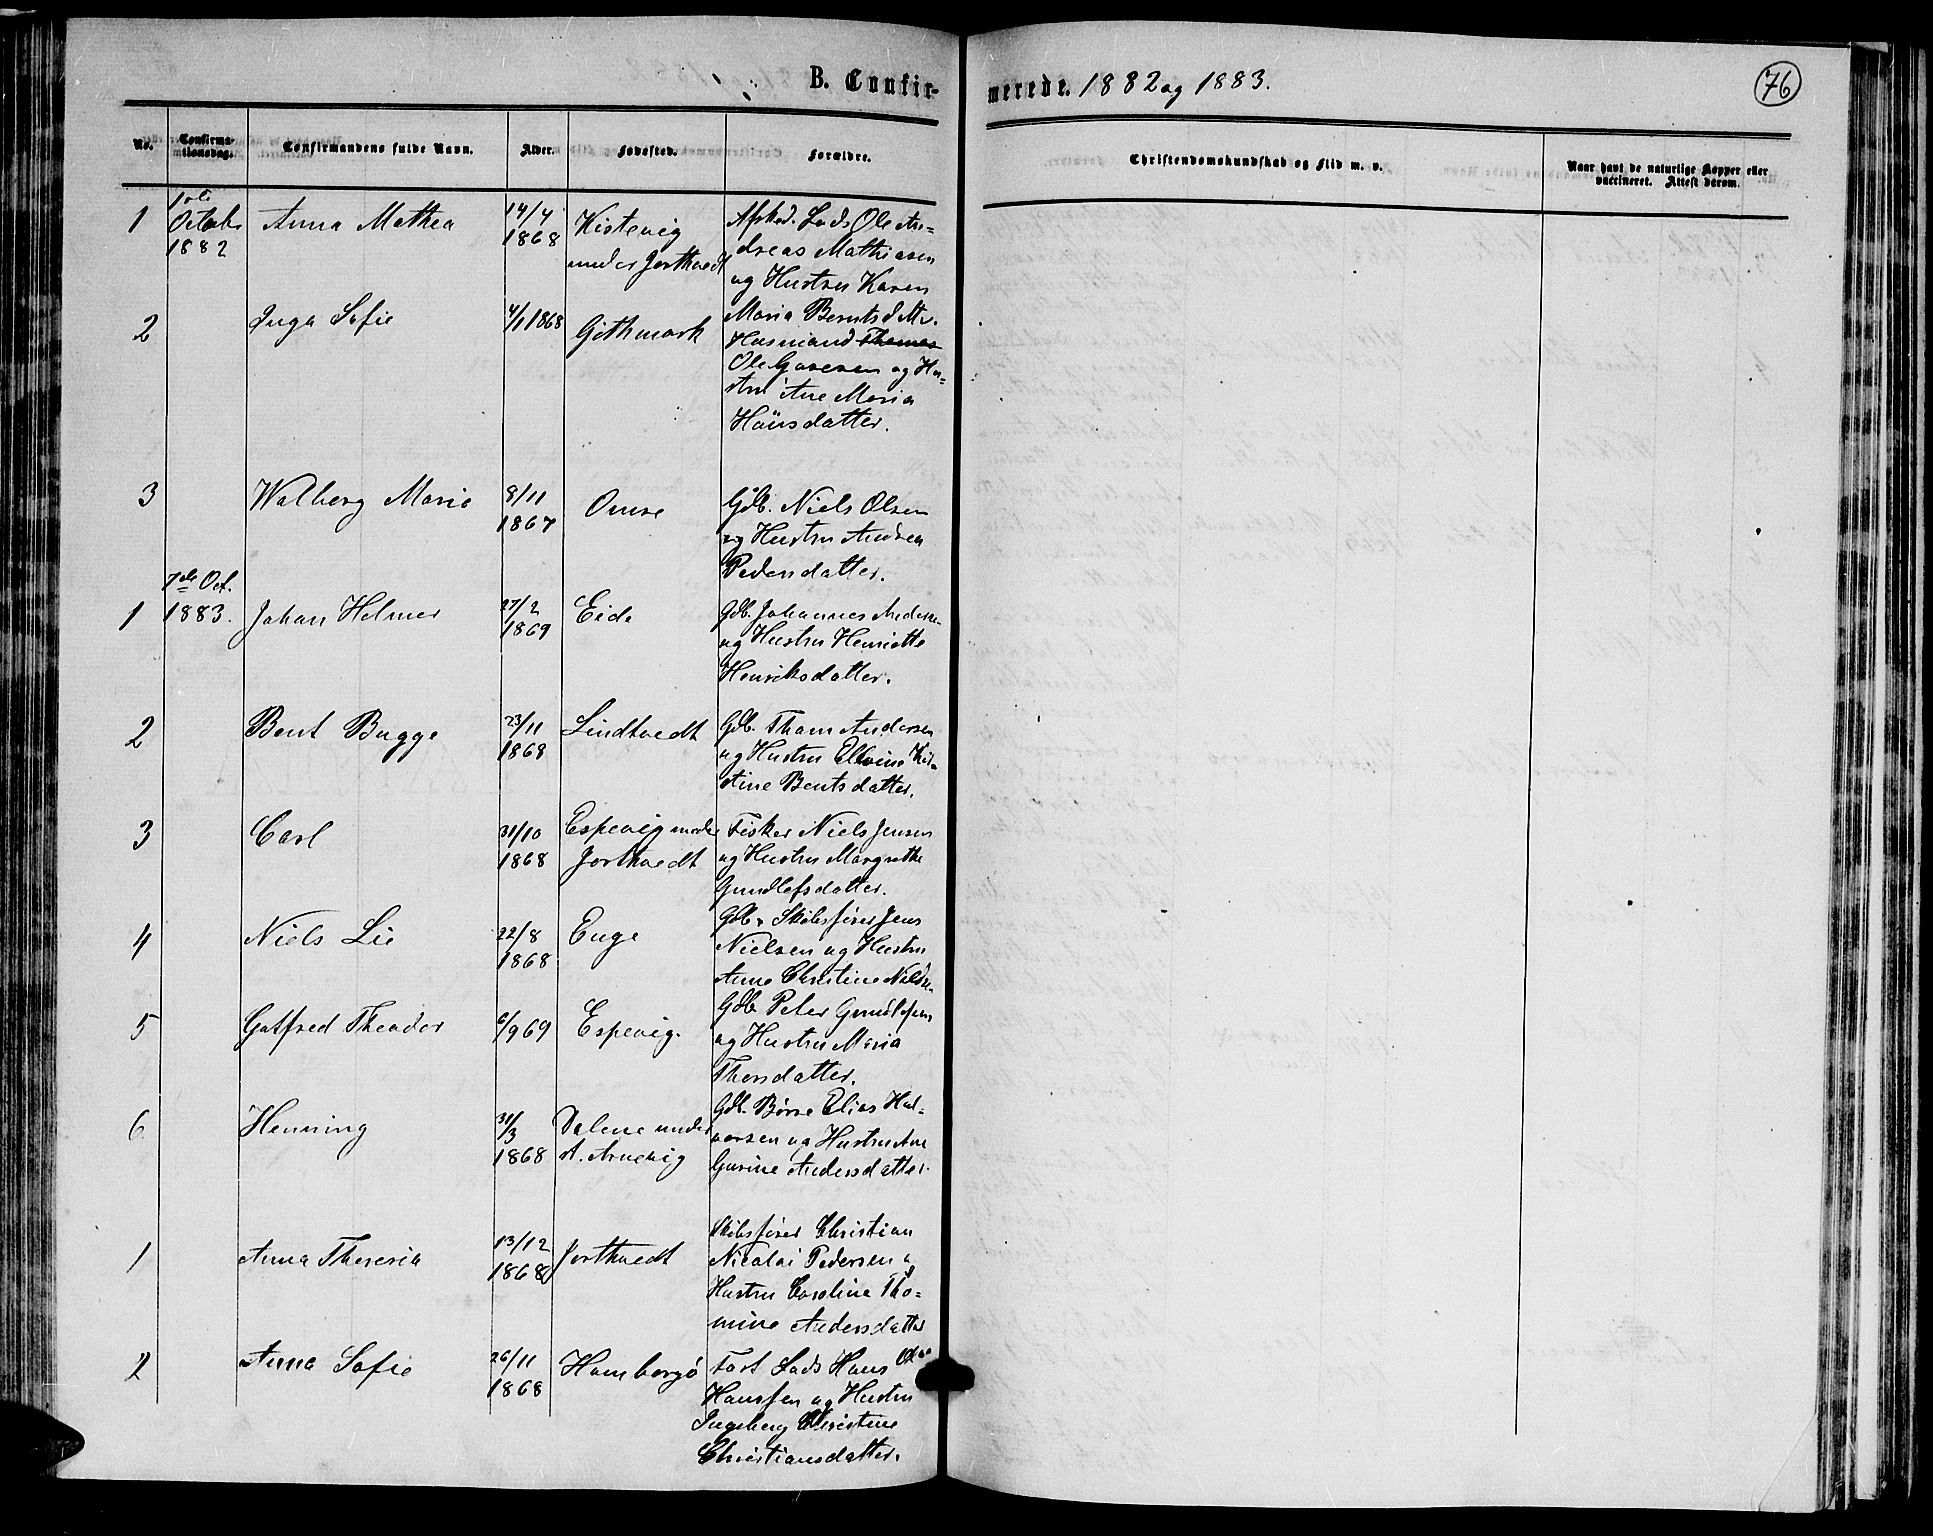 B. Confirmerede. 1882 og 1883.
76
No. Confirmationsdag. Confirmandens fulde Navn. Alder. Fødested. Forældre. Christendomskundskab og Flid m. v. Naar havt de naturlige Kopper eller vaccineret. Attest derom.
1 1ste Octobr 1882 Anna Mathea 14/4 1868 Kistevig under Jorthvedt Afsked. Lods Ole An=
dreas Mathiasen
og Hustru Karen
Maria Berntsdttr.
2 Inga Sofie 4/1 1868 Githmark Husmand Thomas
Ole Gusesen og Hu=
stru Ane Maria
Hansdatter.
3 Walborg Maria 8/11 1867 Omre Gdb. Niels Olsen
og Hustru Andrea
Pedersdatter.
1 7de Oct. 1883. Johan Helmer 27/2 1869 Eide Gdb. Johannes Andersen
og Hustru Henriette
Henriksdatter.
2 Bent Bugge 23/11 1868 Lindtvedt Gdb. Thom Andersen
og Hustru Elevine Kir=
stine Bentsdatter.
3 Carl 31/10 1868 Espevig under Jorthvedt Fisker Niels Jensen
og Hustru Margrethe
Gundlefsdatter.
4 Niels Lie 22/8 1868 Enge Gdb. Skibsfører Jens
Nielsen og Hustru
Anne Christine
5 Gotfred Theodor 6/9 69 Espevig. Gdb Peter Gundlefsen
og Hustru Maria
Thorsdatter.
6 Henning 31/3 1868 Dalene under A. Arnevig Gdb. Børre Elias Hal=
vorsen og Hustru Ane
Gurine Andersdatter.
1 Anna Theresia 13/12 1868 Jorthvedt Skibsfører Christian
Nicolai Pedersen og
Hustru Caroline Tho=
mine Andersdatter
2 Anna Sofie 26/11 1868 Hamborgø Fast Lods Hans Olaus
Hanssen og Hustru
Ingeborg Christine
Christiansdatter.